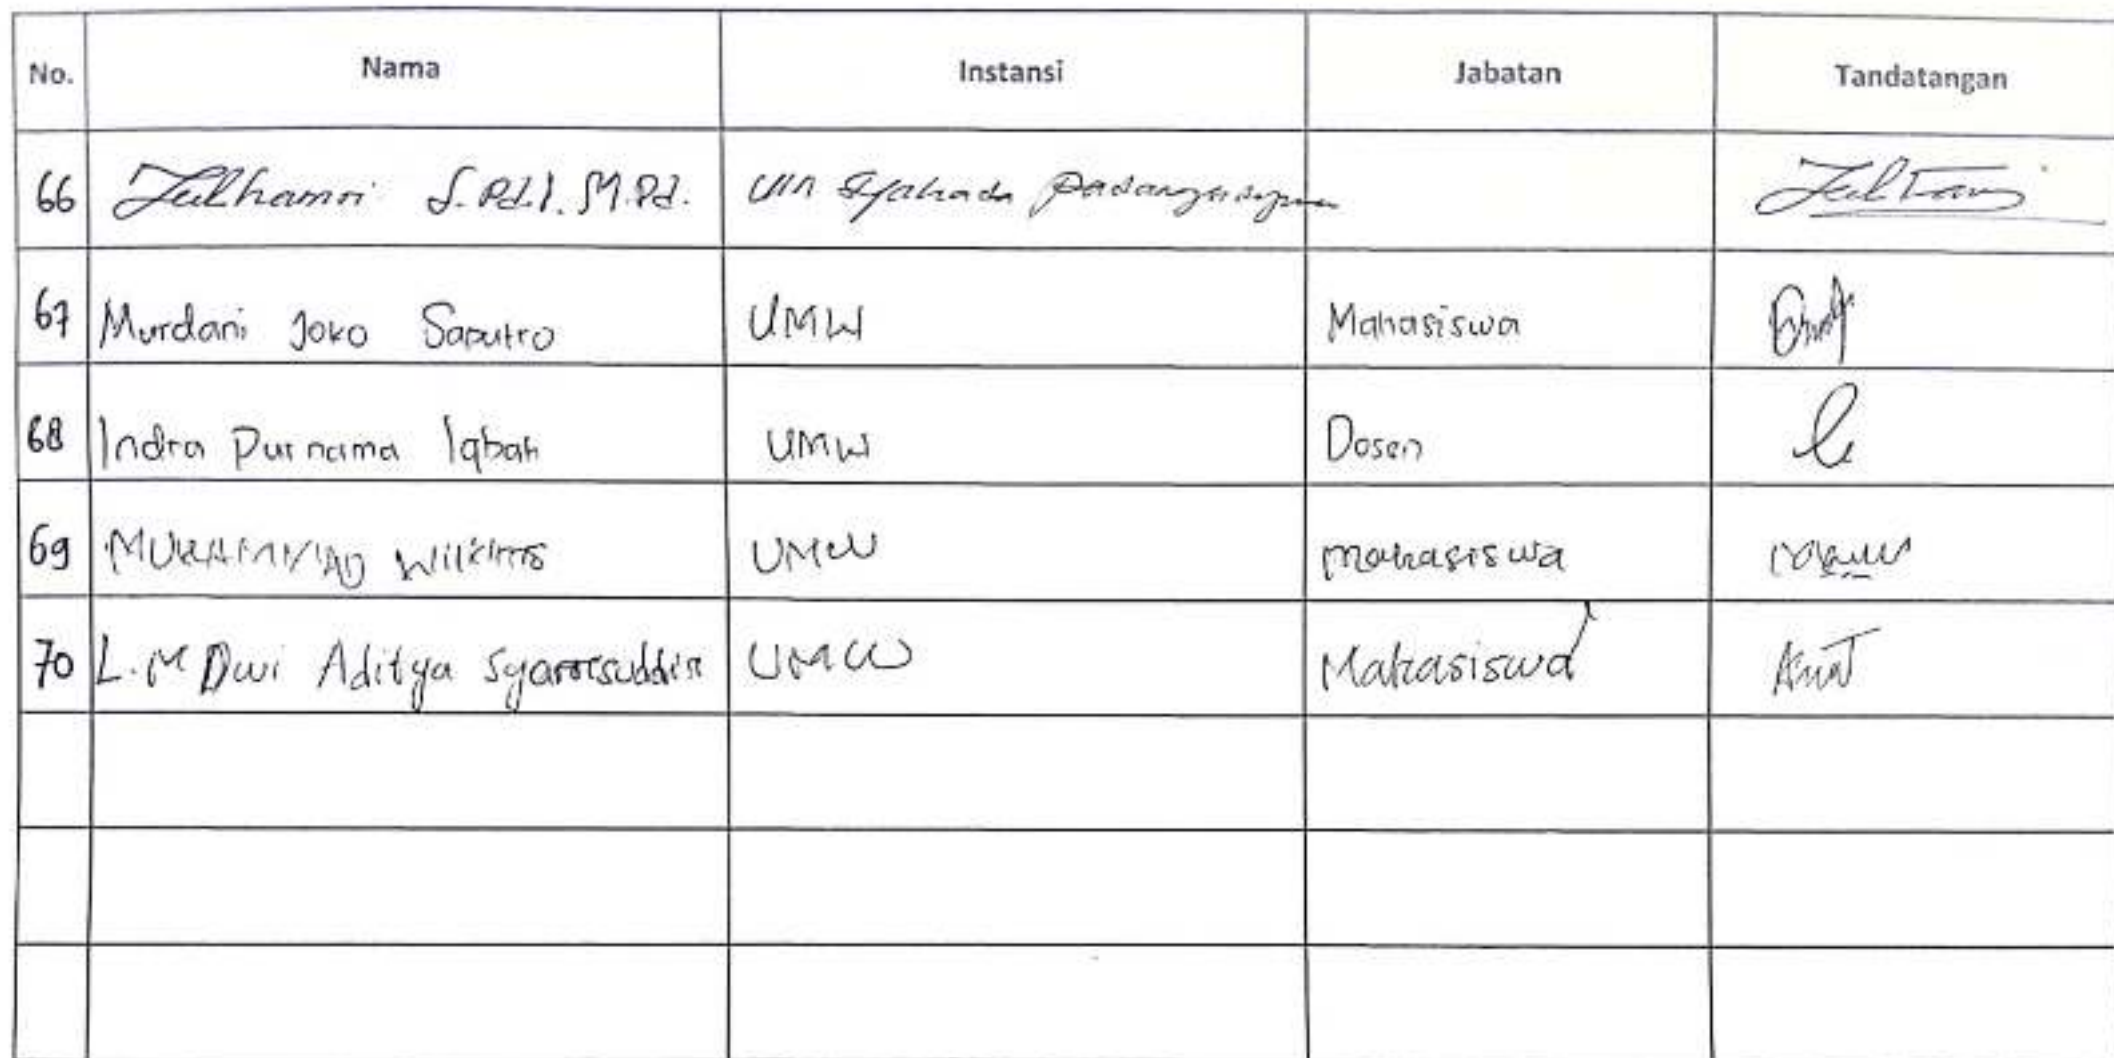 No. Nama Instansi Jabatan Tandatangan
66 Zulhamri S.Pd.I. M.Pd. UIN Syahada Padangsidimpuan
67 Murdani Joko Saputro UMW Mahasiswa
68 Indra Purnama Iqbah UMW Dosen
69 MUHAMMAD Wilkins UMW mahasiswa
70 L.M Dwi Aditya Syamsuddin UMW Mahasiswa